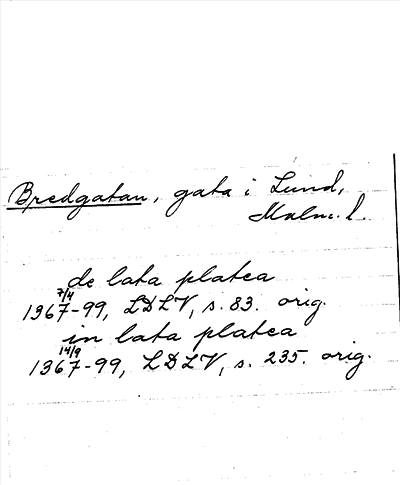 Bredgatan, gata i Lund,
Malm. l.
de lata platea
1367 7/4-99, LDLV, s. 83. orig.
in lata platea
1367 14/9-99, LDLV, s. 235. orig.